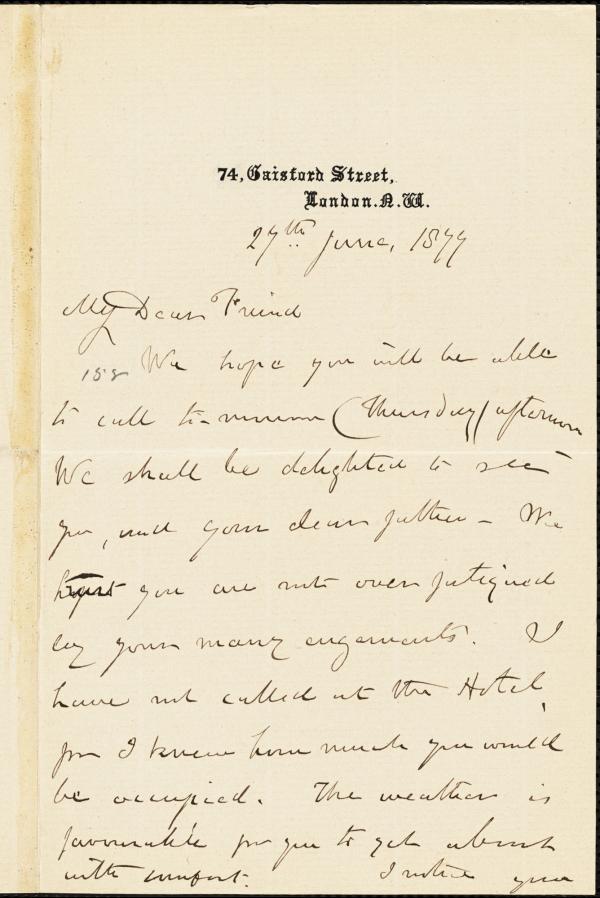 74, Gaisford Street,
London. N.W.
27th June, 1877
My Dear Friend
158 We hope you will be able
to call to-morrow (Thursday) afternoon
We shall be delighted to see
you, and your dear father - We
you are not over fatigued
by your many engements. I
have not called at the Hotel,
for I knew how much you would
be occupied. The weather is
favourable for you to get about
with comfort. I notice you